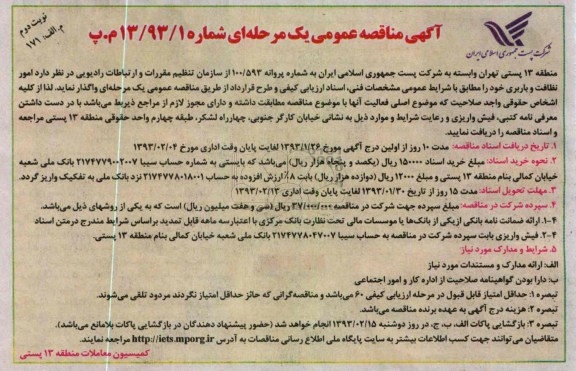 نوبت دوم
م. الف: ۱۷۱
آگهی مناقصه عمومی یک مرحله‌ای شماره ۱۳/۹۳/۱م.پ
شرکت پست جمهوری اسلامی ایران
منطقه ۱۳ پستی تهران وابسته به شرکت پست جمهوری اسلامی ایران به شماره پروانه ۱۰۰/۵۹۳ از سازمان تنظیم مقررات و ارتباطات رادیویی در نظر دارد امور
نظافت و باربری خود را مطابق با شرایط عمومی مشخصات فنی، اسناد ارزیابی کیفی و طرح قرارداد از طریق مناقصه عمومی یک مرحله‌ای واگذار نماید. لذا از کلیه
اشخاص حقوقی واجد صلاحیت که موضوع اصلی فعالیت آنها با موضوع مناقصه مطابقت داشته و دارای مجوز لازم از مراجع ذیربط می‌باشد با در دست داشتن
معرفی نامه کتبی، فیش واریزی و رعایت شرایط و موارد ذیل به نشانی خیابان کارگر جنوبی، چهارراه لشکر، طبقه چهارم واحد حقوقی منطقه ۱۳ پستی مراجعه
و اسناد مناقصه را دریافت نمایند.
۱. تاریخ دریافت اسناد مناقصه: مدت ۱۰ روز از اولین درج آگهی مورخ ۱۳۹۳/۱/۲۶ لغایت پایان وقت اداری مورخ ۱۳۹۳/۰۲/۰۴
۲. نحوه خرید اسناد: مبلغ خرید اسناد ۱۵۰۰۰۰ ریال (یکصد و پنجاه هزار ریال) می‌باشد که بایستی به شماره حساب سیبا ۲۱۷۴۷۷۹۰۰۲۰۰۷ بانک ملی شعبه
خیابان کمالی بنام منطقه ۱۳ پستی و مبلغ ۱۲۰۰۰ ریال (دوازده هزار ریال) بابت ۸٪ ارزش افزوده به حساب ۲۱۷۴۷۷۸۰۱۸۰۰۱ نزد بانک ملی به تفکیک واریز گردد.
۳. مهلت تحویل اسناد: مدت ۱۵ روز از تاریخ ۱۳۹۳/۰۱/۳۰ لغایت پایان وقت اداری ۱۳۹۳/۰۲/۱۳
۴. سپرده شرکت در مناقصه: مبلغ سپرده جهت شرکت در مناقصه ۳۷/۰۰۰/۰۰۰ ریال (سی و هفت میلیون ریال) است که به یکی از روشهای ذیل می‌باشد.
۴-۱. ارائه ضمانت نامه بانکی از یکی از بانک‌ها یا موسسات مالی تحت نظارت بانک مرکزی با اعتبار سه ماهه قابل تمدید براساس شرایط مندرج در متن اسناد
۴-۲. فیش واریزی بابت سپرده شرکت در مناقصه به حساب سیبا ۲۱۷۴۷۷۸۰۴۷۰۰۷ بانک ملی شعبه خیابان کمالی بنام منطقه ۱۳ پستی.
۵. شرایط و مدارک مورد نیاز
الف: ارائه مدارک و مستندات مورد نیاز
ب: دارا بودن گواهینامه صلاحیت از اداره کار و امور اجتماعی
تبصره ۱: حداقل امتیاز قابل قبول در مرحله ارزیابی کیفی ۶۰ می‌باشد و مناقصه‌گرانی که حائز حداقل امتیاز نگردند مردود تلقی می‌شوند.
تبصره ۲: هزینه درج آگهی به عهده برنده مناقصه می‌باشد.
تبصره ۳: بازگشایی پاکات الف، ب، ج، در روز دوشنبه ۱۳۹۳/۰۲/۱۵ انجام خواهد شد (حضور پیشنهاد دهندگان در بازگشایی پاکات بلامانع می‌باشد).
متقاضیان می‌توانند جهت کسب اطلاعات بیشتر به سایت پایگاه ملی اطلاع رسانی مناقصات به آدرس http://iets.mporg.ir مراجعه نمایند.
کمیسیون معاملات منطقه ۱۳ پستی